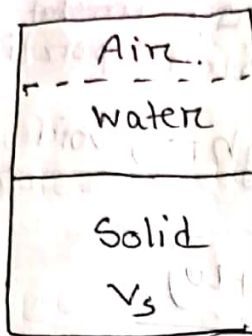 Air.
Water
Solid
Vs